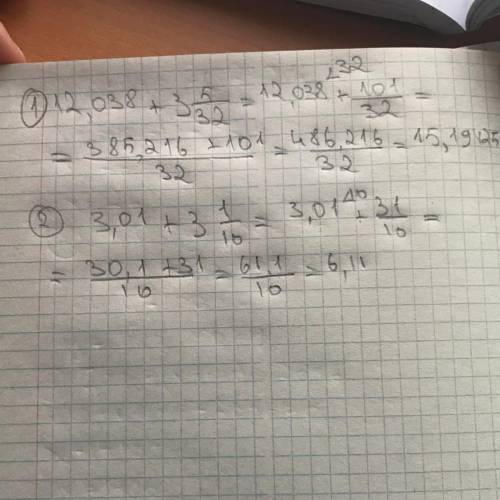 ① 12,038 + 3 5/32 = 12,038^32 + 101/32 =
= 385,216 + 101/32 = 486,216/32 = 15,19425
② 3,01 + 3 1/10 = 3,01^10 + 31/10 =
= 30,1 + 31/10 = 61,1/10 = 6,11